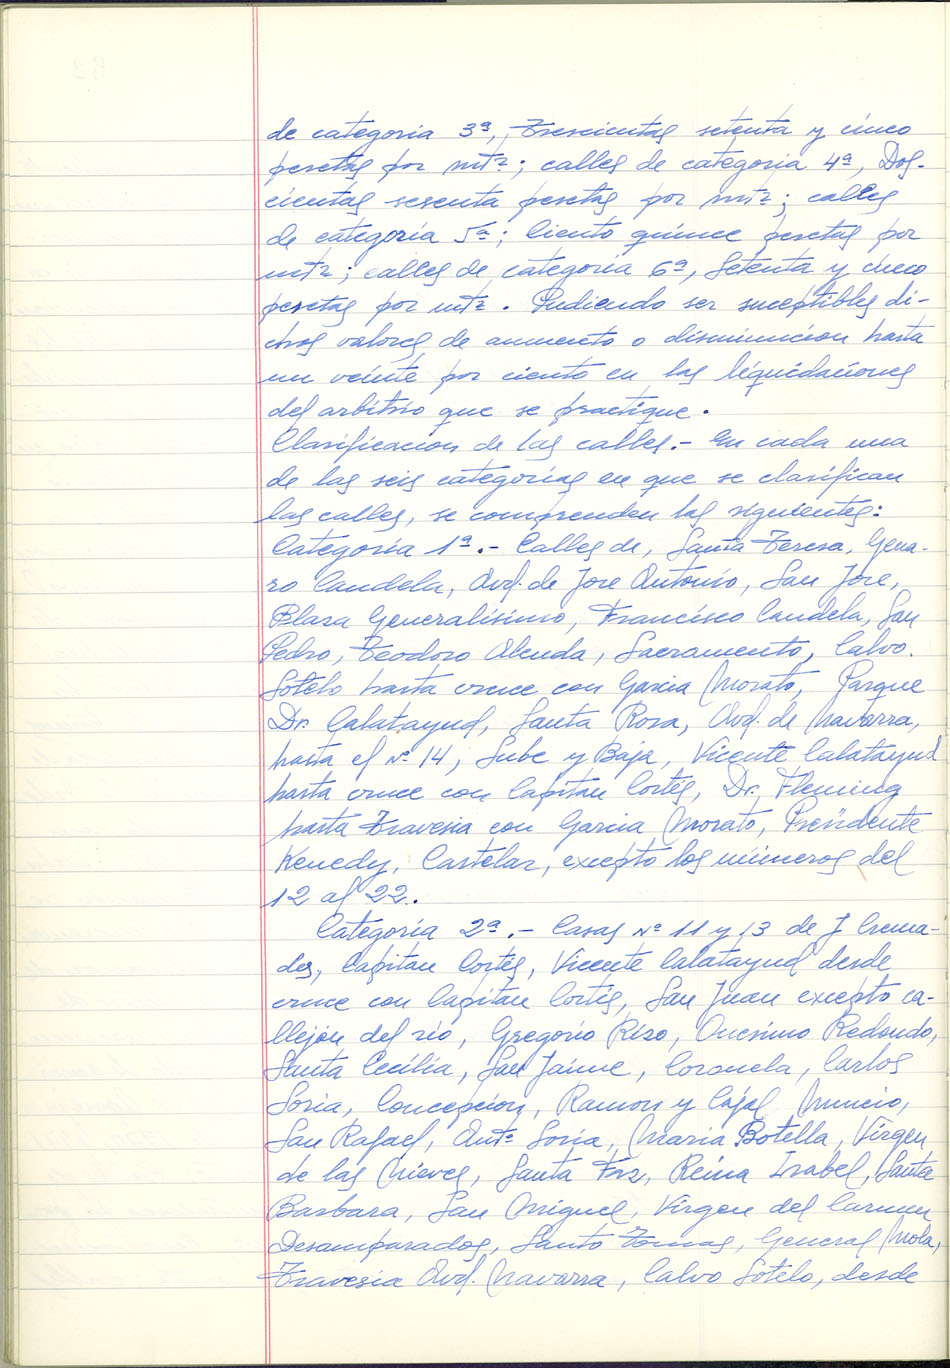 de categoria 3ª, Trescientas setenta y cinco
pesetas por mt²; calles de categoria 4ª, Dos-
cientas sesenta pesetas por mt²; calles
de categoría 5ª; Ciento quince pesetas por
mt²; calles de categoria 6ª, Setenta y cinco
pesetas por mt². Pudiendo ser suceptibles di-
chos valores de aumento o disminucion hasta
un veinte por ciento en las liquidaciones
del arbitrio que se practique.
Clasificacion de las calles.- En cada una
de las seis categorías en que se clasifican
las calles, se comprenden las siguientes:
Categoría 1ª.- Calles de, Santa Teresa, Gena-
ro Candela, Avd. de Jose Antonio, San Jose,
Plasa Generalísimo, Francisco Candela, San
Pedro, Teodoro Alenda, Sacramento, Calvo.
Sotelo hasta cruce con Garcia Morato, Parque
Dr. Calatayud, Santa Rosa, Avd. de Navarra,
hasta el Nº 14, Sube y Baja, Vicente Calatayud
hasta cruce con Capitan Cortés, Dr. Fleming
hasta Travesia con Garcia Morato, Presidente
Kenedy, Castelar, excepto los números del
12 al 22.
Categoría 2ª.- Casas Nº 11 y 13 de J Crema-
des, Capitan Cortés, Vicente Calatayud desde
cruce con Capitan Cortés, San Juan excepto ca-
llejon del río, Gregorio Rizo, Onesimo Redondo,
Santa Cecilia, San Jaime, Coronela, Carlos
Soria, Concepcion, Ramon y Cajal
San Rafael, Antº Soria, Maria Botella, Virgen
de las Nieves, Santa Faz, Reina Isabel, Santa
Barbara, San Miguel, Virgen del Carmen
Desamparados, Santo Tomas, General Mola,
Travesia Avd. Navarra, Calvo Sotelo, desde